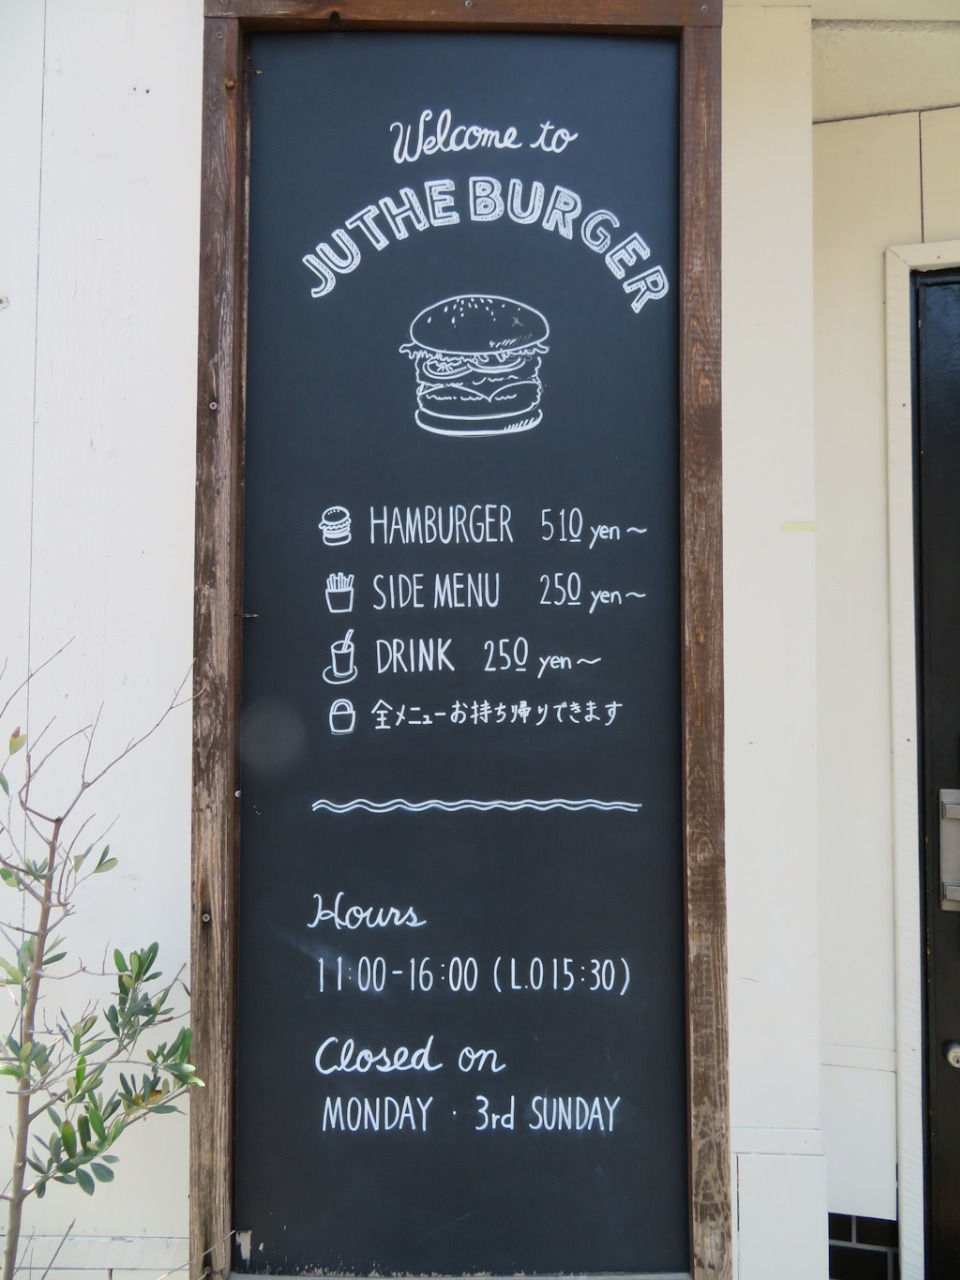 Welcome to
JUTHE BURGER
HAMBURGER 510 yen～
SIDE MENU 250 yen～
DRINK 250 yen～
全メニューお持ち帰りできます
Hours
11:00-16:00 (L.O 15:30)
Closed on
MONDAY · 3rd SUNDAY